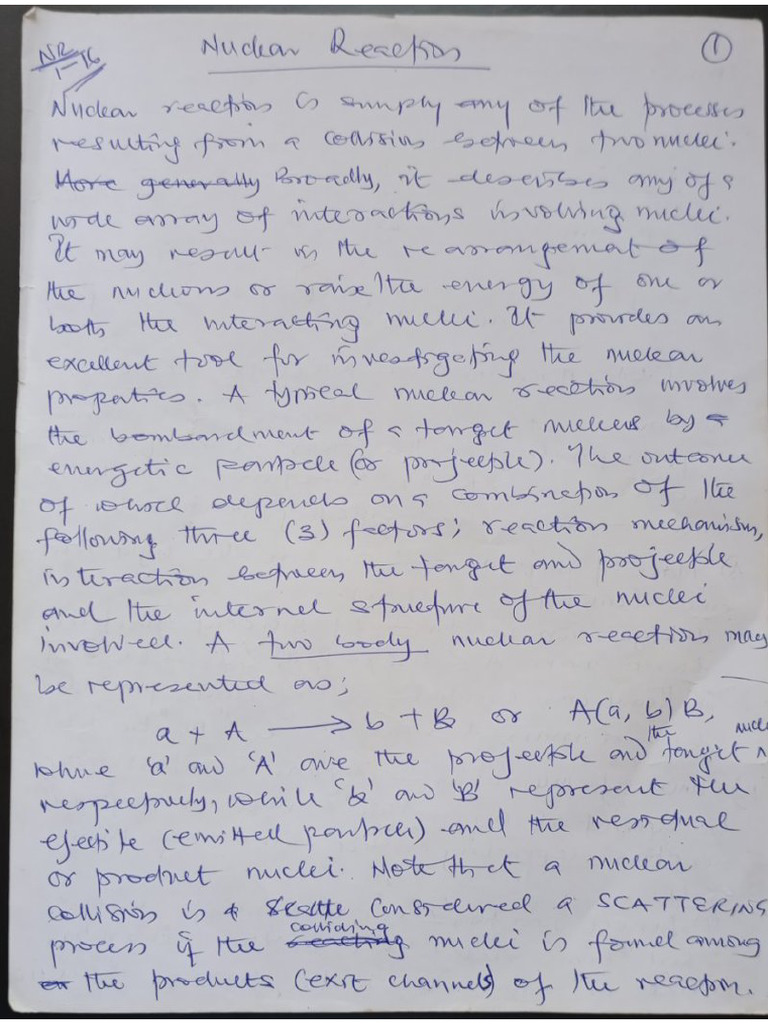 NR
1-16
Nuclear Reaction
1
Nuclear reaction is simply any of the processes
resulting from a collision between two nuclei.
More generally Broadly, it describes any of a
wide array of interactions involving nuclei.
It may result in the rearrangement of
the nucleons or raise the energy of one or
both the interacting nuclei. It provides an
excellent tool for investigating the nuclear
properties. A typical nuclear reaction involves
the bombardment of a target nucleus by a
energetic particle (or projectile). The outcome
of which depends on a combination of the
following three (3) factors; reaction mechanism,
interaction between the target and projectile
and the internal structure of the nuclei
involved. A two body nuclear reaction may
be represented as;
a + A ⟶ b + B or A(a, b)B,
where 'a' and 'A' are the projectile and the target nucl
respectively, while 'b' and 'B' represent the
ejectile (emitted particle) and the residual
or product nuclei. Note that a nuclear
collision is a considered a SCATTERING
process if the reacting colliding nuclei is found among
the products (exit channels) of the reaction.